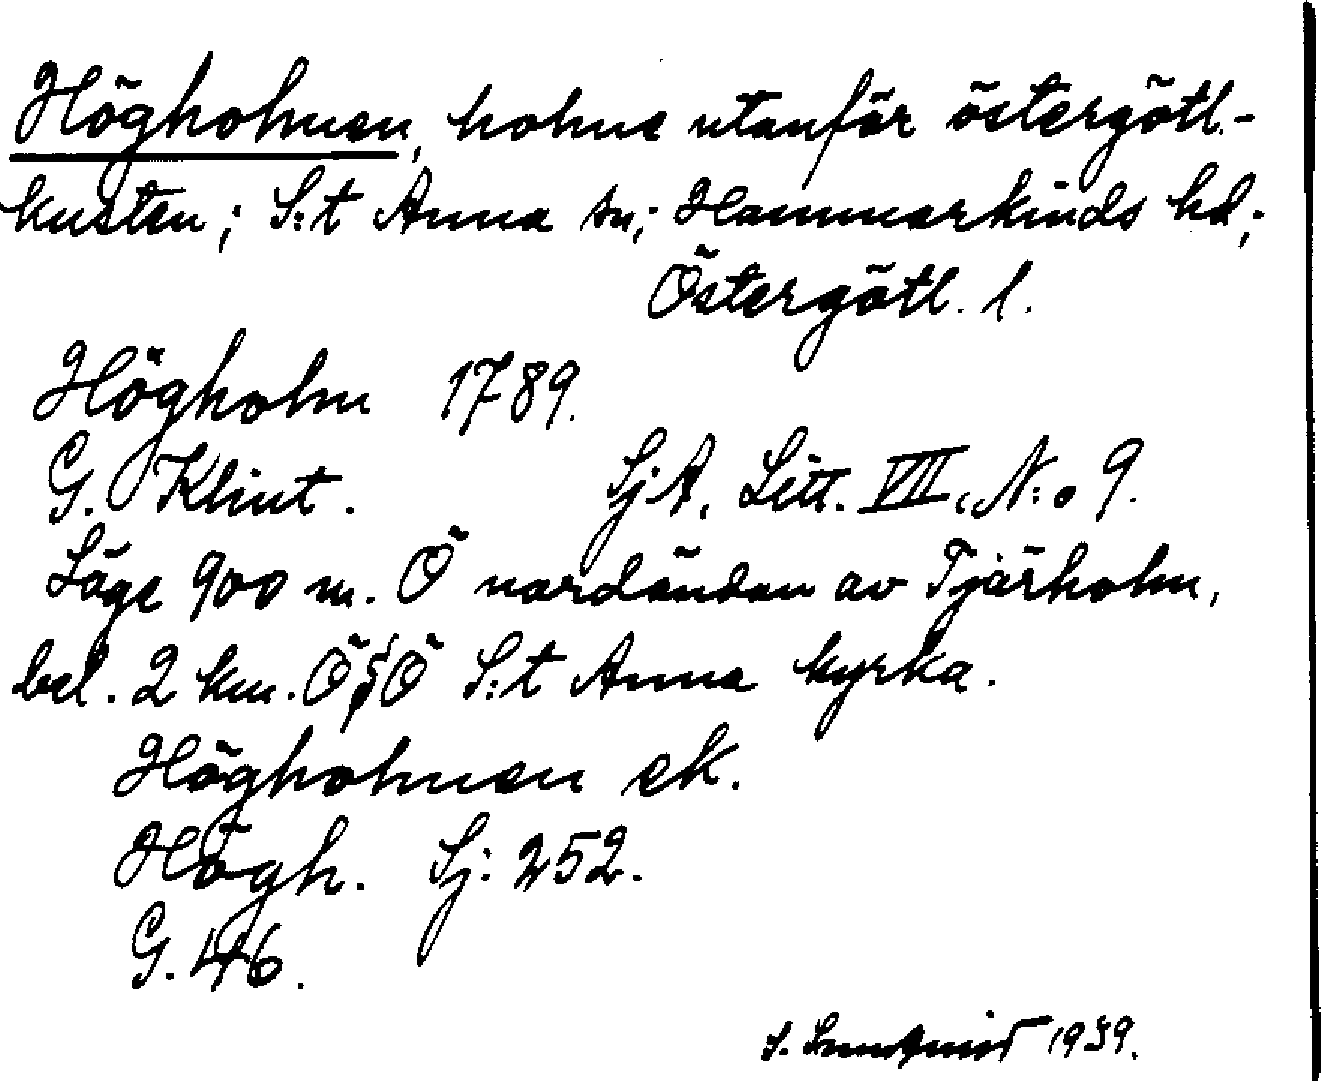 Högholmen, holme utanför östergötl.-
kusten; S:t Anna sn; Hammarkinds hd;
Östergötl. l.
Högholm 1789.
G. Klint. SjA, Litt. VII, N:o 9.
Läge 900 m. Ö nordändan av Tjärholm,
bel. 2 km. Ö§Ö S:t Anna kyrka.
Högholmen ek.
Högh. Sj: 252.
G. 46.
S. 1939.